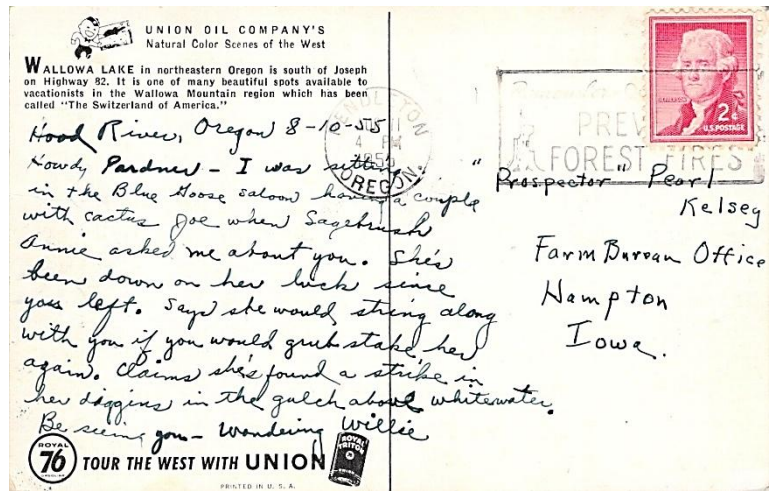 UNION OIL COMPANY'S
Natural Color Scenes of the West
WALLOWA LAKE in northeastern Oregon is south of Joseph
on Highway 82. It is one of many beautiful spots available to
vacationists in the Wallowa Mountain region which has been
called "The Switzerland of America."
Hood River, Oregon 8-10-55
Howdy Pardner - I was sitting
in the Blue Goose saloon having a couple
with cactus Joe when Sagebrush
Annie asked me about you. She's
been down on her luck since
you left. Says she would string along
with you if you would grub stake her
again. Claims she's found a strike in
her diggins in the gulch above whitewater.
Be seeing you - Wondering Willie
ROYAL
76
TOUR THE WEST WITH UNION
ROYAL
TRITON
PRINTED IN U. S. A.
PENDLETON
11
4 PM
1955
OREGON.
PREV
FOREST FIRES
2¢
U.S. POSTAGE
"Prospector" Pearl
Kelsey
Farm Bureau Office
Hampton
Iowa.